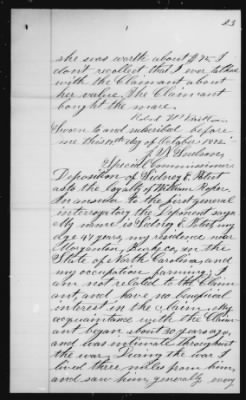 83
she was worth about $75 I
dont recollect that I ever talked
with the Claimant about
her value. The Claimant
bought the mare.
Robert
Sworn to and subscribed before
me this day of October 1872
Special Commissioner
Deposition of Sidney E.
as to the loyalty of William Roper.
In answer to the first general
interrogatory the Deponent says
My name is Sidney E.
age 47 years, my residence near
Morganton, Burke Co, in the
State of North Carolina, and
my occupation farming; I
am not related to the Claim
ant, and have no beneficial
interest in the claim. My
acquaintance with the Claim
ant began about 20 years ago,
and was intimate throughout
the war. During the war I
lived three miles from him,
and saw him generally every